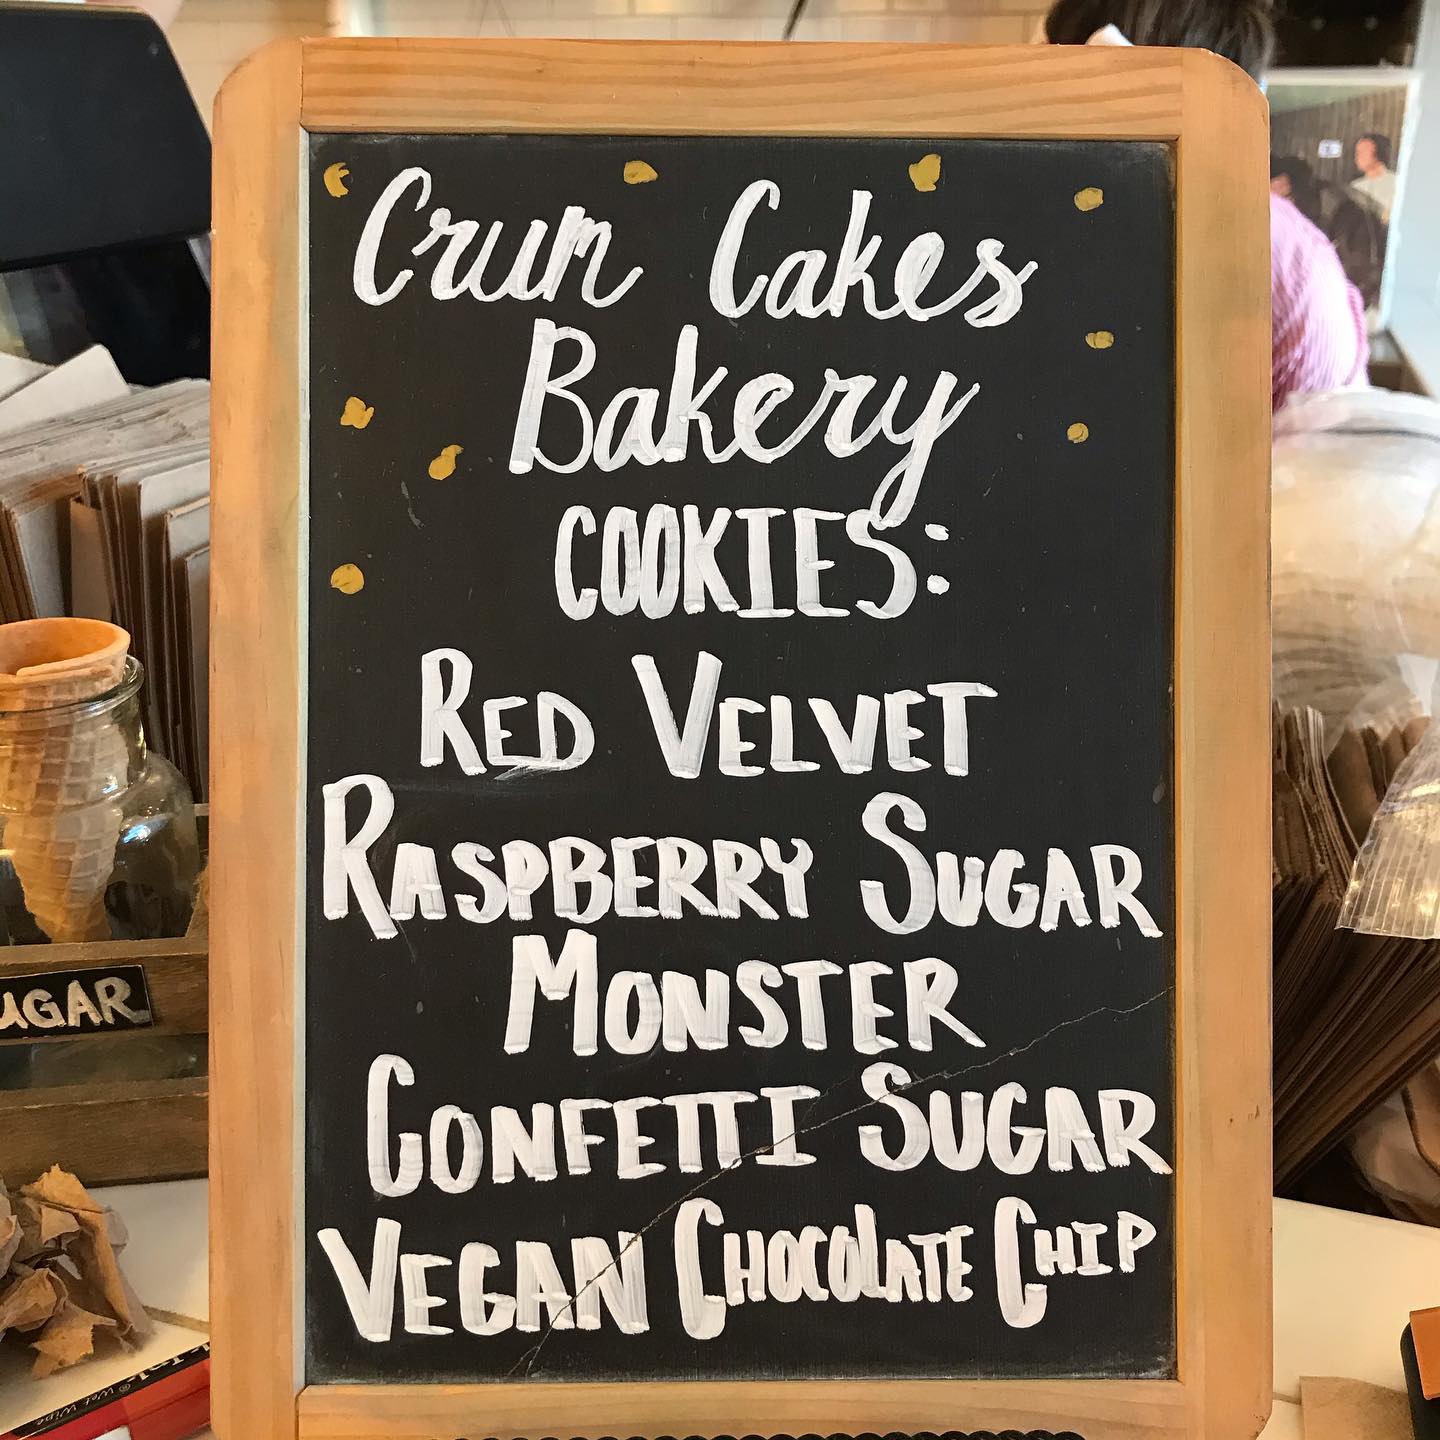 Crum Cakes
Bakery
COOKIES:
RED VELVET
RASPBERRY SUGAR
MONSTER
CONFETTI SUGAR
VEGAN CHOCOLATE CHIP
UGAR
Wet Wipe